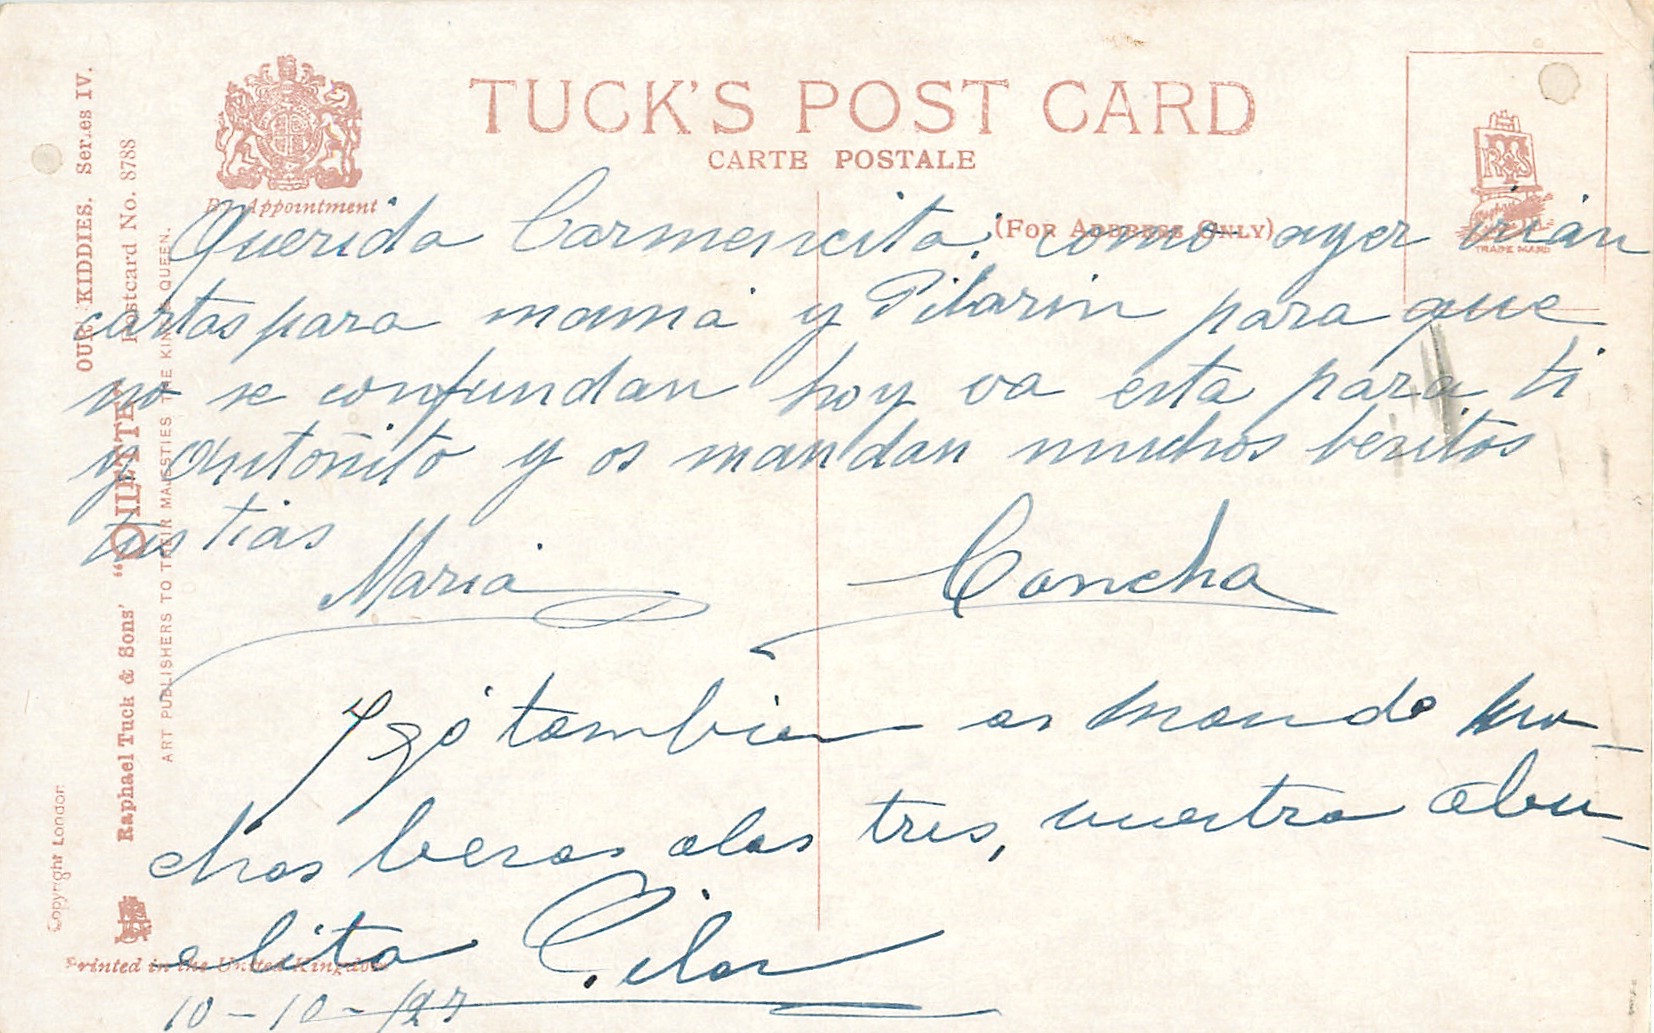 TUCK'S POST CARD
CARTE POSTALE
(FOR ADDRESS ONLY)
By Appointment
TRADE MARK
OUR KIDDIES. Series IV.
Postcard No. 8788
Raphael Tuck & Sons' "OILETTE"
ART PUBLISHERS TO THEIR MAJESTIES THE KING & QUEEN.
Copyright London
Printed in the United Kingdom
Querida Carmencita: como ayer irián
cartas para mamá y Pilarin para que
no se confundan hoy va esta para ti
y Antoñito y os mandan muchos besitos
tus tias
Maria Concha
Y yó tambien os mando mu-
chos besos alos tres, vuestra abu-
elita Pilar
10-10-1927